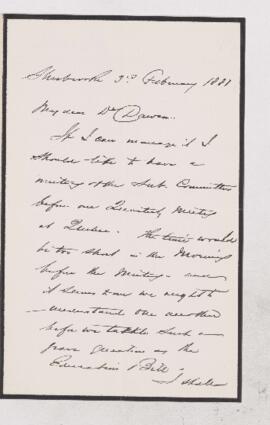 Sherbrooke 3rd February 1881
My dear Dr Dawson.
If I can manage it I
should like to have a
meeting of the Sub Committee
before our Quarterly Meeting
at Quebec. The time would
be too short in the Morning
before the Meeting - and
it seems to me we ought to
understand one another
before we tackle such a
grave question as the
Education Bill.
I shall